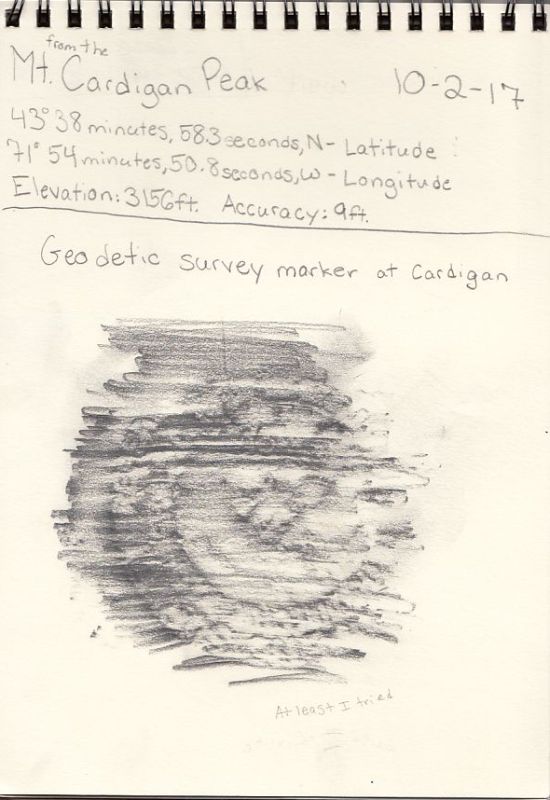 from the
Mt. Cardigan Peak 10-2-17
43° 38 minutes, 58.3 seconds, N - Latitude
71° 54 minutes, 50.8 seconds, W - Longitude
Elevation: 3156ft. Accuracy: 9ft.
Geodetic survey marker at Cardigan
At least I tried